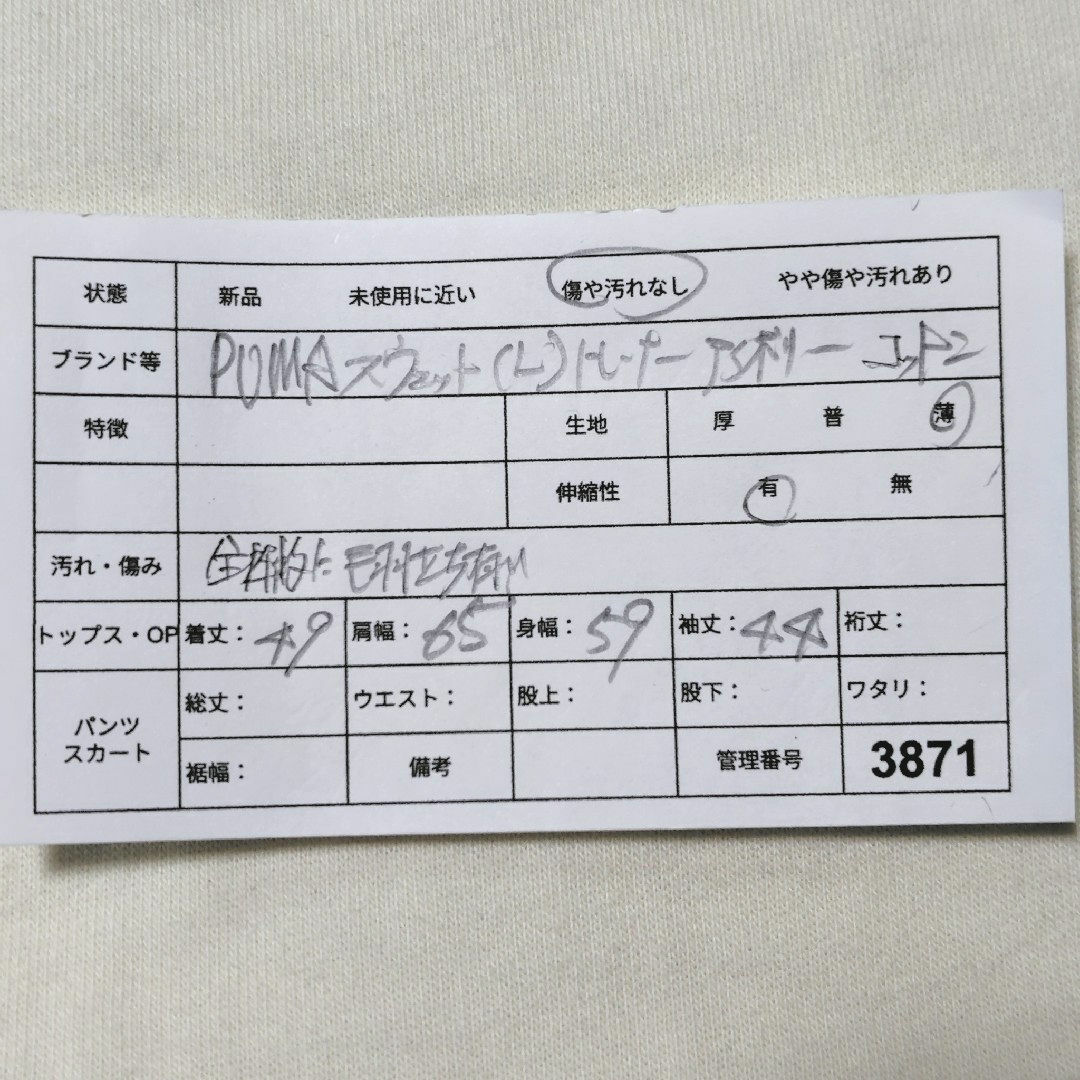 状態 新品 未使用に近い 傷や汚れなし やや傷や汚れあり
ブランド等 PUMA スウェット (L) トレーナー アイボリー コットン
特徴 生地 厚 普 薄
伸縮性 有 無
汚れ・傷み 全体的に毛羽立ち有り
トップス・OP 着丈：49 肩幅：65 身幅：59 袖丈：44 裄丈：
パンツ 総丈： ウエスト： 股上： 股下： ワタリ：
スカート
裾幅： 備考 管理番号 3871